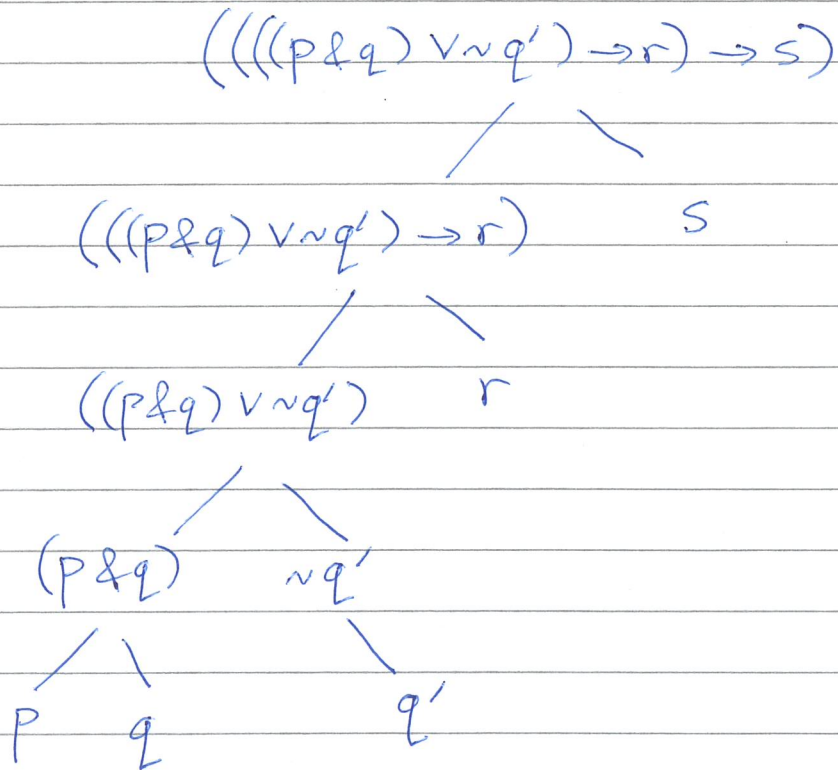 ((((p&q) ∨ ~q′) → r) → s)
(((p&q) ∨ ~q′) → r) s
((p&q) ∨ ~q′) r
(p&q) ~q′
p q q′